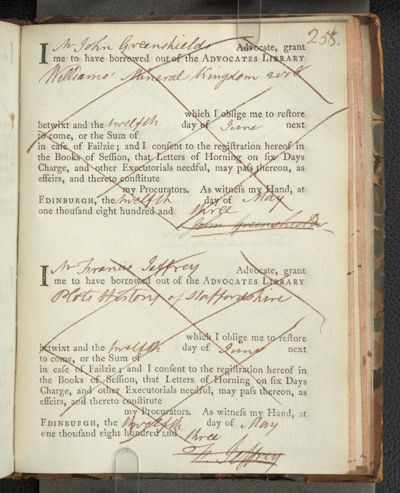 258.
I Mr John Greenshields Advocate, grant
me to have borrowed out of the ADVOCATES LIBRARY
Williams' Mineral Kingdom 2 vols
which I oblige me to reſtore
betwixt and the twelfth day of June next
to come, or the Sum of
in caſe of Failzie; and I conſent to the regiſtration hereof in
the Books of Seſſion, that Letters of Horning on ſix Days
Charge, and other Executorials needful, may paſs thereon, as
effeirs, and thereto conſtitute
my Procurators. As witneſs my Hand, at
EDINBURGH, the twelfth day of May
one thouſand eight hundred and three
John Greenshields
I Mr Francis Jeffrey Advocate, grant
me to have borrowed out of the ADVOCATES LIBRARY
Plots History of Staffordshire
which I oblige me to reſtore
betwixt and the twelfth day of June next
to come, or the Sum of
in caſe of Failzie; and I conſent to the regiſtration hereof in
the Books of Seſſion, that Letters of Horning on ſix Days
Charge, and other Executorials needful, may paſs thereon, as
effeirs, and thereto conſtitute
my Procurators. As witneſs my Hand, at
EDINBURGH, the twelfth day of May
one thouſand eight hundred and three
F Jeffrey